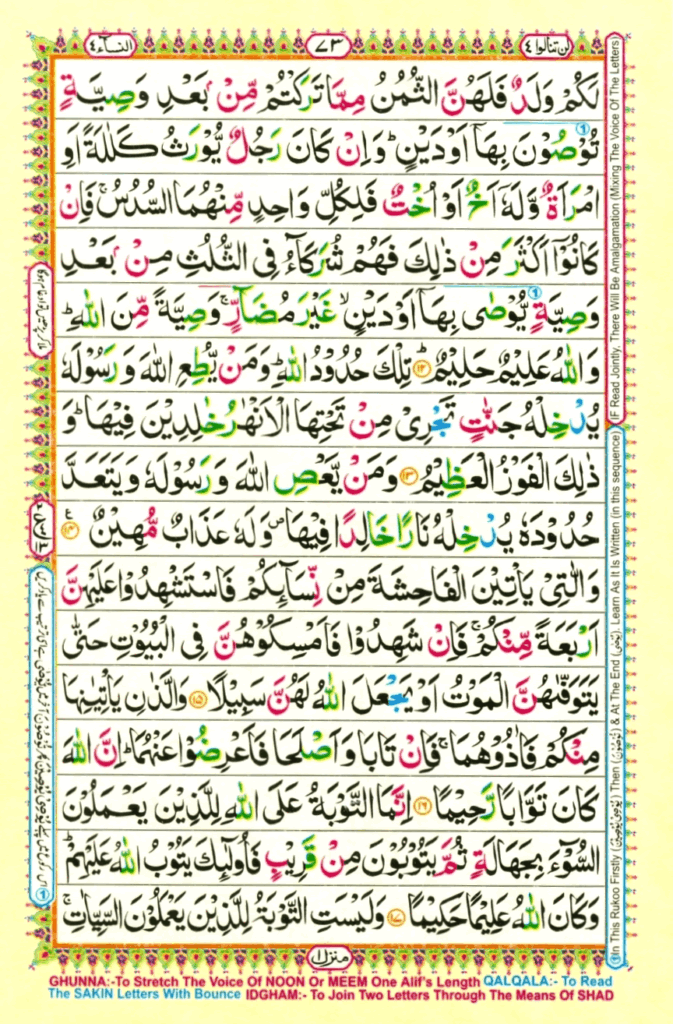 لن تنالوا ٤
٧٣
النسآء ٤
لَكُمْ وَلَدٌ فَلَهُنَّ الثُّمُنُ مِمَّا تَرَكْتُمْ مِّنْۢ بَعْدِ وَصِيَّةٍ
تُوْصُوْنَ بِهَاۤ اَوْ دَيْنٍ ؕ وَاِنْ كَانَ رَجُلٌ يُّوْرَثُ كَلٰلَةً اَوِ
امْرَاَةٌ وَّلَهٗۤ اَخٌ اَوْ اُخْتٌ فَلِكُلِّ وَاحِدٍ مِّنْهُمَا السُّدُسُ ۚ فَاِنْ
كَانُوْۤا اَكْثَرَ مِنْ ذٰلِكَ فَهُمْ شُرَكَآءُ فِى الثُّلُثِ مِنْۢ بَعْدِ
وَصِيَّةٍ يُّوْصٰى بِهَاۤ اَوْ دَيْنٍ ۙ غَيْرَ مُضَآرٍّ ۚ وَصِيَّةً مِّنَ اللّٰهِ ؕ
وَاللّٰهُ عَلِيْمٌ حَلِيْمٌ ؕ ﴿۱۲﴾ تِلْكَ حُدُوْدُ اللّٰهِ ؕ وَمَنْ يُّطِعِ اللّٰهَ وَرَسُوْلَهٗ
يُدْخِلْهُ جَنّٰتٍ تَجْرِىْ مِنْ تَحْتِهَا الْاَنْهٰرُ خٰلِدِيْنَ فِيْهَا ؕ وَ
ذٰلِكَ الْفَوْزُ الْعَظِيْمُ ﴿۱۳﴾ وَمَنْ يَّعْصِ اللّٰهَ وَرَسُوْلَهٗ وَيَتَعَدَّ
حُدُوْدَهٗ يُدْخِلْهُ نَارًا خَالِدًا فِيْهَا ۪ وَلَهٗ عَذَابٌ مُّهِيْنٌ ﴿۱۴﴾
وَالّٰتِىْ يَاْتِيْنَ الْفَاحِشَةَ مِنْ نِّسَآئِكُمْ فَاسْتَشْهِدُوْا عَلَيْهِنَّ
اَرْبَعَةً مِّنْكُمْ ۚ فَاِنْ شَهِدُوْا فَاَمْسِكُوْهُنَّ فِى الْبُيُوْتِ حَتّٰى
يَتَوَفّٰهُنَّ الْمَوْتُ اَوْ يَجْعَلَ اللّٰهُ لَهُنَّ سَبِيْلًا ﴿۱۵﴾ وَالَّذٰنِ يَاْتِيٰنِهَا
مِنْكُمْ فَاٰذُوْهُمَا ۚ فَاِنْ تَابَا وَاَصْلَحَا فَاَعْرِضُوْا عَنْهُمَا ؕ اِنَّ اللّٰهَ
كَانَ تَوَّابًا رَّحِيْمًا ﴿۱۶﴾ اِنَّمَا التَّوْبَةُ عَلَى اللّٰهِ لِلَّذِيْنَ يَعْمَلُوْنَ
السُّوْٓءَ بِجَهَالَةٍ ثُمَّ يَتُوْبُوْنَ مِنْ قَرِيْبٍ فَاُولٰٓئِكَ يَتُوْبُ اللّٰهُ عَلَيْهِمْ ؕ
وَكَانَ اللّٰهُ عَلِيْمًا حَكِيْمًا ﴿۱۷﴾ وَلَيْسَتِ التَّوْبَةُ لِلَّذِيْنَ يَعْمَلُوْنَ السَّيِّاٰتِ ۚ
منزل ۱
(IF Read Jointly, There Will Be Amalgamation (Mixing The Voice Of The Letters
In This Rukoo Firstly (يُوْصِىْ يُوْصِيْنَ) Then (تُوْصُوْنَ) & At The End (يُوْصٰى). Learn As It Is Written (in this sequence)
GHUNNA:-To Stretch The Voice Of NOON Or MEEM One Alif's Length QALQALA:- To Read
The SAKIN Letters With Bounce IDGHAM:- To Join Two Letters Through The Means Of SHAD